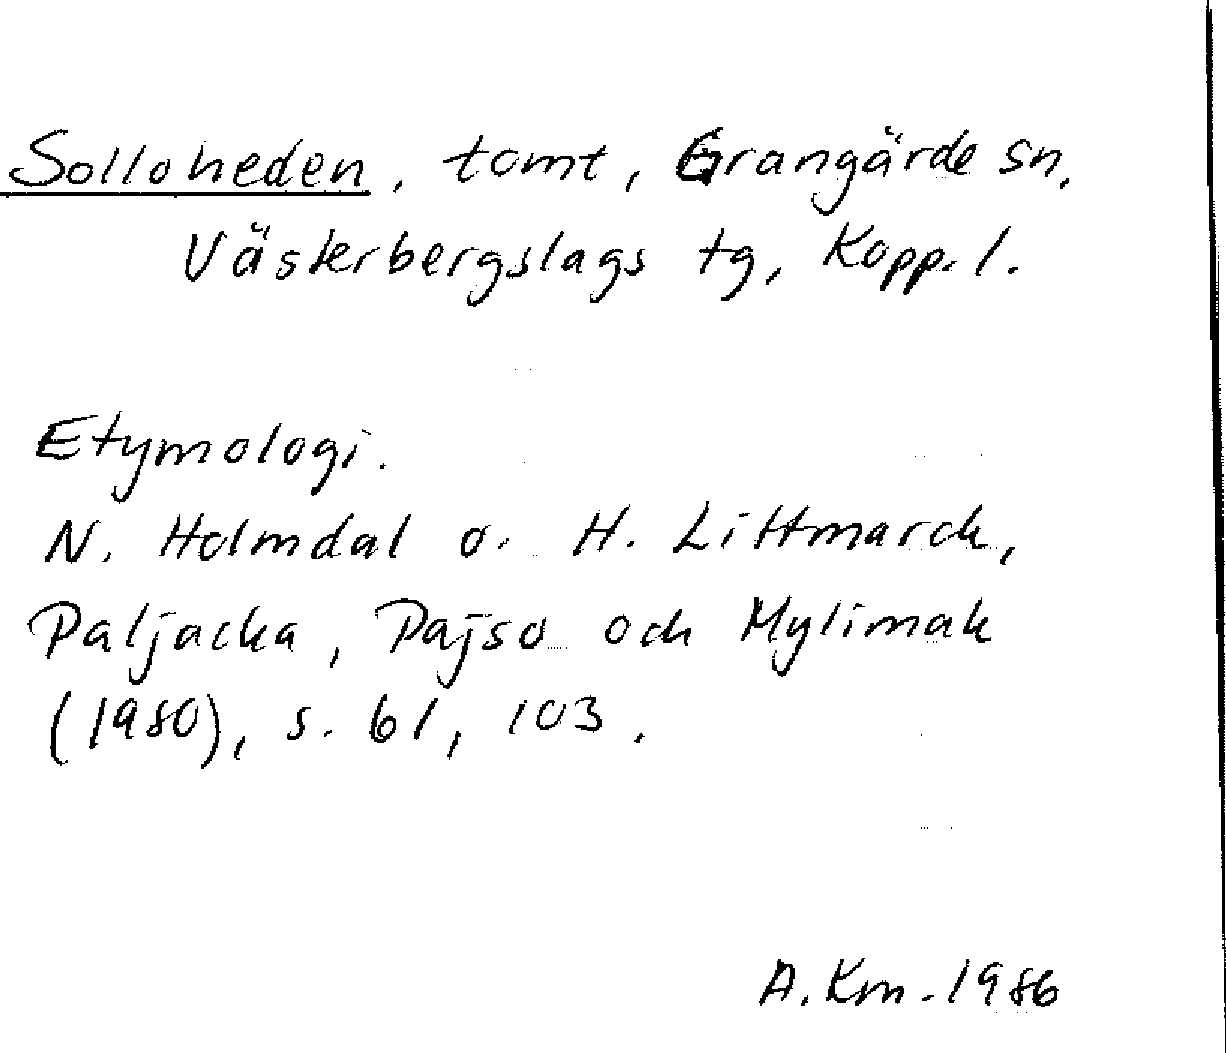 Solloheden, tomt, Grangärde sn,
Västerbergslags tg, Kopp. l.
Etymologi.
N. Holmdal o. H. Littmarck,
Paljacka, Pajso och Mylimak
(1980), s. 61, 103.
A. Km. 1986